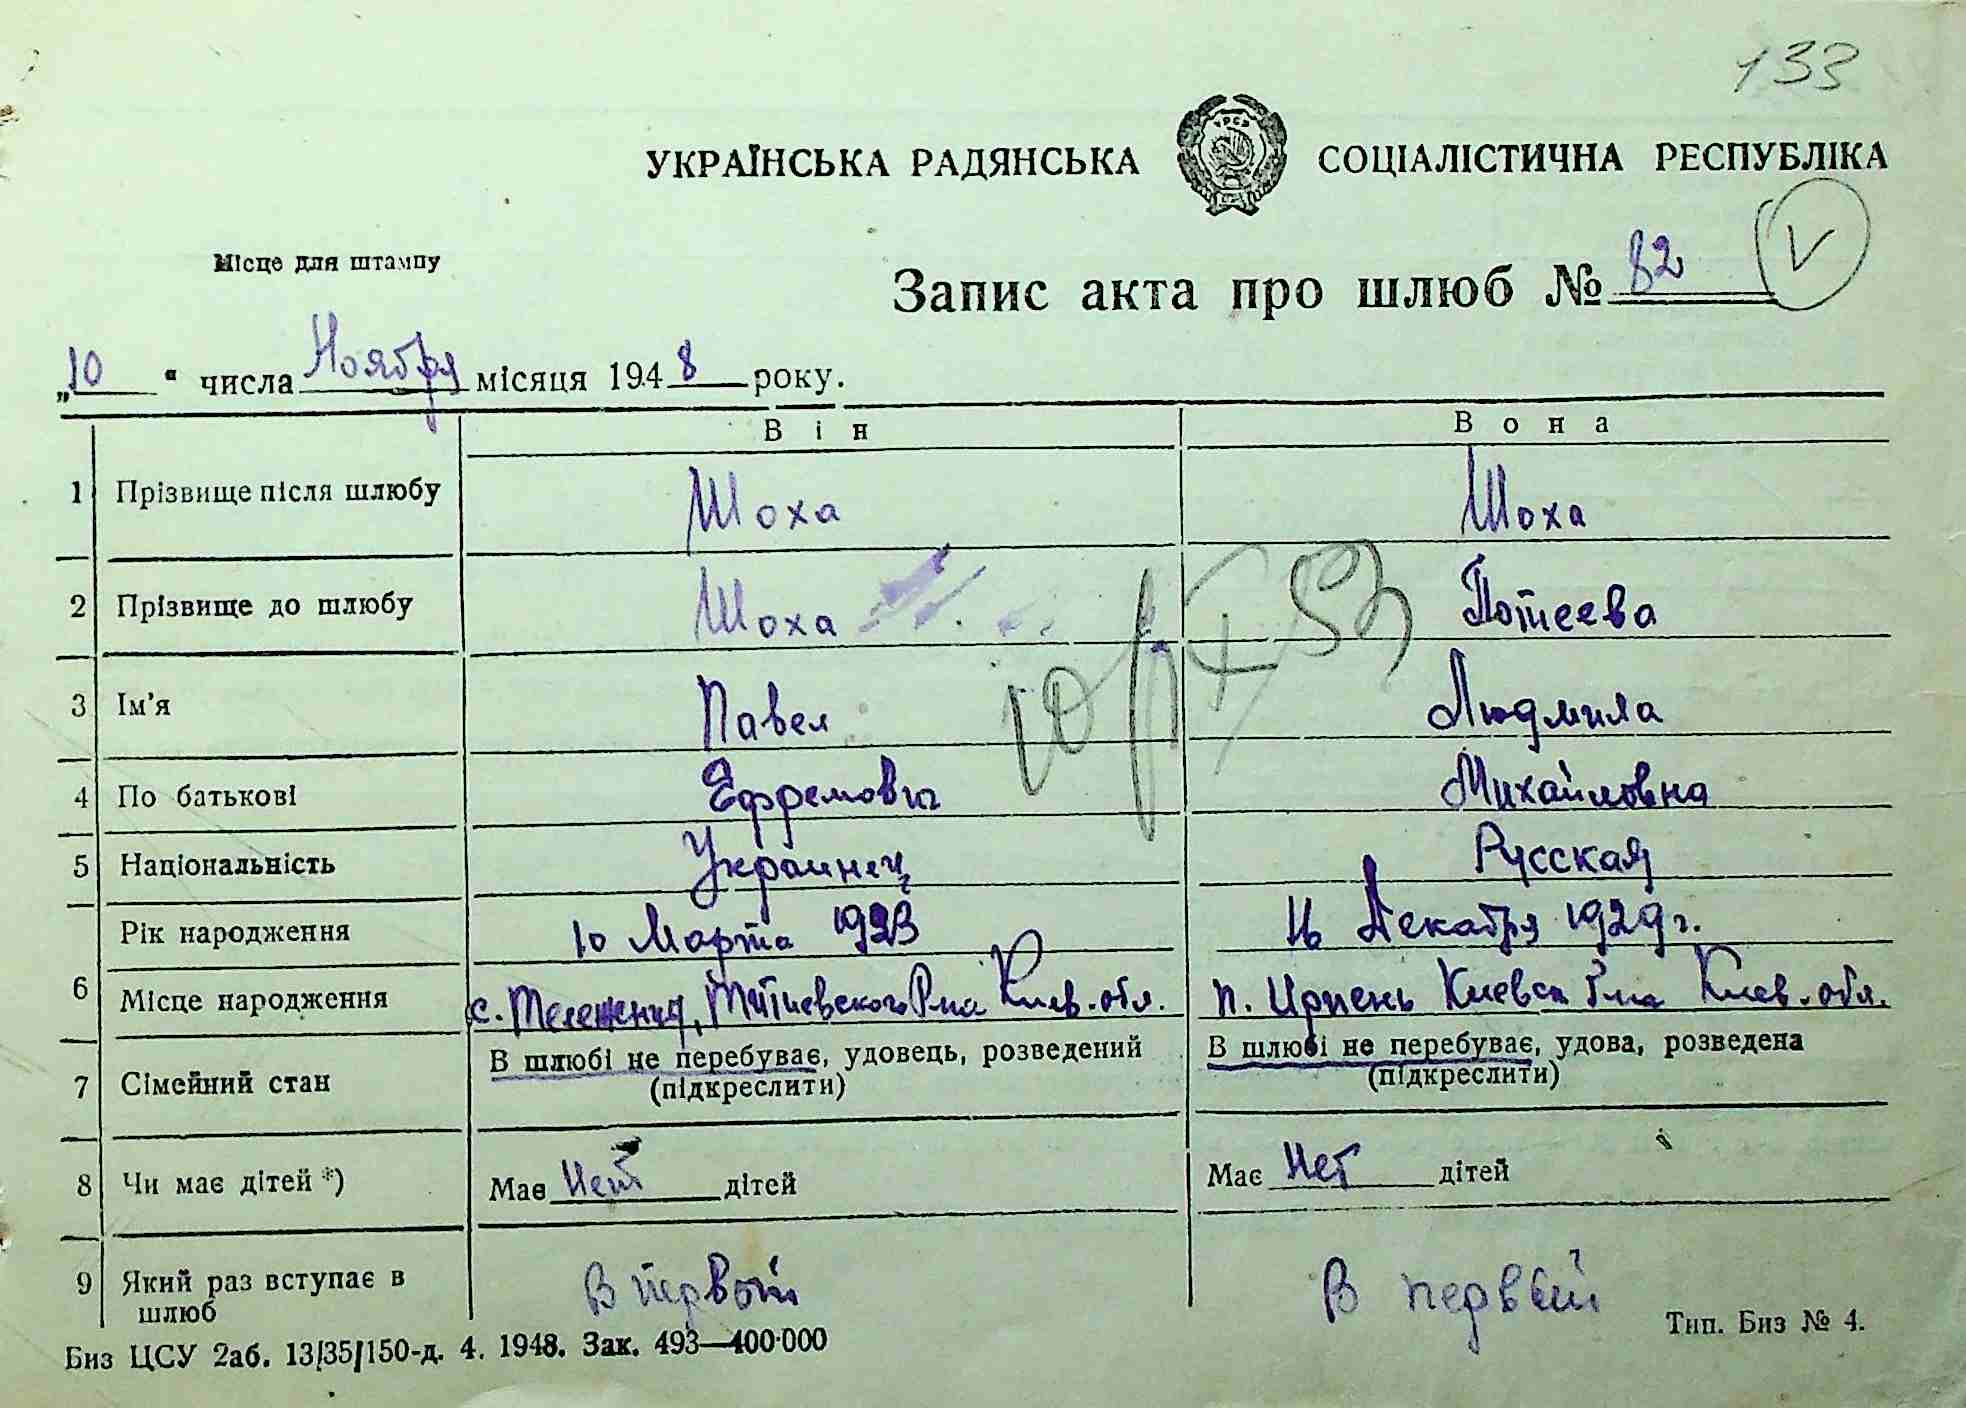 133
УКРАЇНСЬКА РАДЯНСЬКА СОЦІАЛІСТИЧНА РЕСПУБЛІКА
Місце для штампу
Запис акта про шлюб № 82 V
„10“ числа Ноября місяця 1948 року.
Він Вона
1 Прізвище після шлюбу Шоха Шоха
2 Прізвище до шлюбу Шоха Потеева
3 Ім’я Павел Людмила
4 По батькові Ефремович Михайловна
5 Національність Украинец Русская
6 Рік народження 10 Марта 1923 16 Декабря 1929 г.
Місце народження с. Р-на Киев. обл. п. Ирпень Киевск Р-на Киев. обл.
7 Сімейний стан В шлюбі не перебуває, удовець, розведений В шлюбі не перебуває, удова, розведена
(підкреслити) (підкреслити)
8 Чи має дітей *) Має Нет дітей Має Нет дітей
9 Який раз вступає в шлюб В первый В первый
Тип. Биз № 4.
Биз ЦСУ 2аб. 13/35/150-д. 4. 1948. Зак. 493—400·000